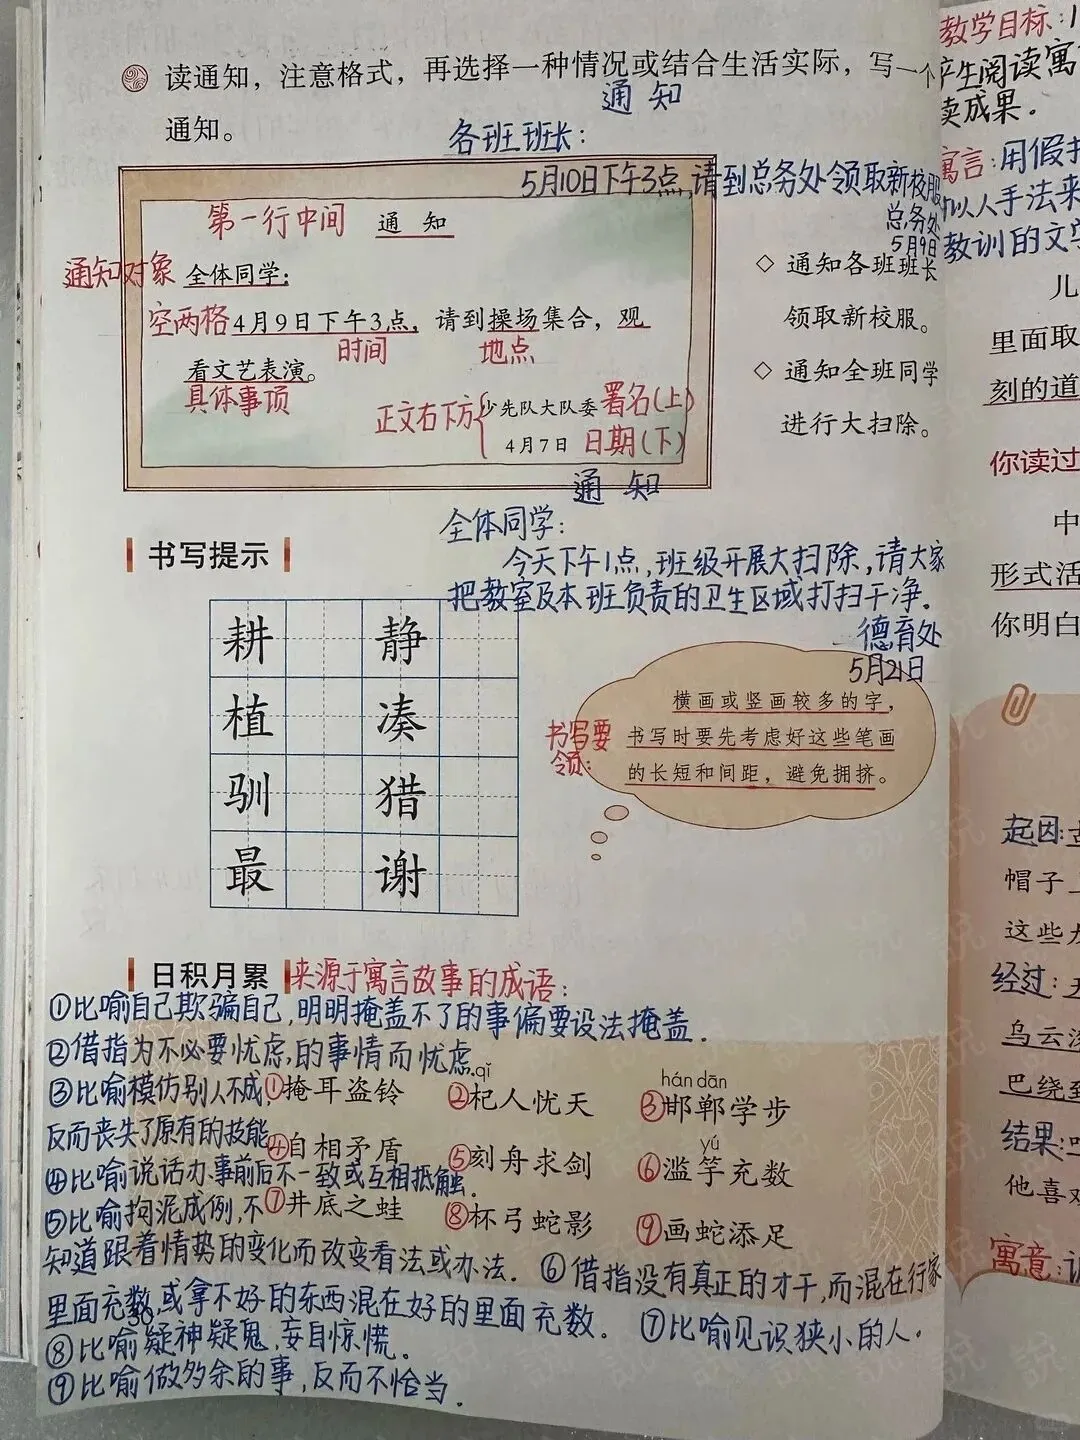 读通知，注意格式，再选择一种情况或结合生活实际，写一个
通知。
通 知
各班班长：
5月10日下午3点，请到总务处领取新校服
总务处
5月9日
第一行中间 通 知
通知对象 全体同学：
空两格 4月9日下午3点，请到操场集合，观
时间 地点
看文艺表演。
具体事项
正文右下方 少先队大队委 署名(上)
4月7日 日期(下)
◇ 通知各班班长
领取新校服。
◇ 通知全班同学
进行大扫除。
通 知
全体同学：
今天下午1点，班级开展大扫除，请大家
把教室及本班负责的卫生区域打扫干净．
德育处
5月21日
书写提示
耕 静
植 凑
驯 猎
最 谢
书写要
领：
横画或竖画较多的字，
书写时要先考虑好这些笔画
的长短和间距，避免拥挤。
日积月累 来源于寓言故事的成语：
①比喻自己欺骗自己，明明掩盖不了的事偏要设法掩盖．
②借指为不必要忧虑，的事情而忧虑．
qǐ
hán dān
③比喻模仿别人不成，①掩耳盗铃 ②杞人忧天 ③邯郸学步
反而丧失了原有的技能
yú
④自相矛盾 ⑤刻舟求剑 ⑥滥竽充数
④比喻说话办事前后不一致或互相抵触．
⑤比喻拘泥成例，不 ⑦井底之蛙 ⑧杯弓蛇影 ⑨画蛇添足
知道跟着情势的变化而改变看法或办法．⑥借指没有真正的才干，而混在行家
里面充数，或拿不好的东西混在好的里面充数．⑦比喻见识狭小的人．
30
⑧比喻疑神疑鬼，妄自惊慌．
⑨比喻做多余的事，反而不恰当．
教学目标：1
产生阅读寓
读成果．
寓言：用假托
拟人手法来
教训的文字
儿
里面取
刻的道
你读过
中
形式活
你明白
起因：
帽子
这些
经过：
乌云
巴绕到
结果：
他喜欢
寓意：